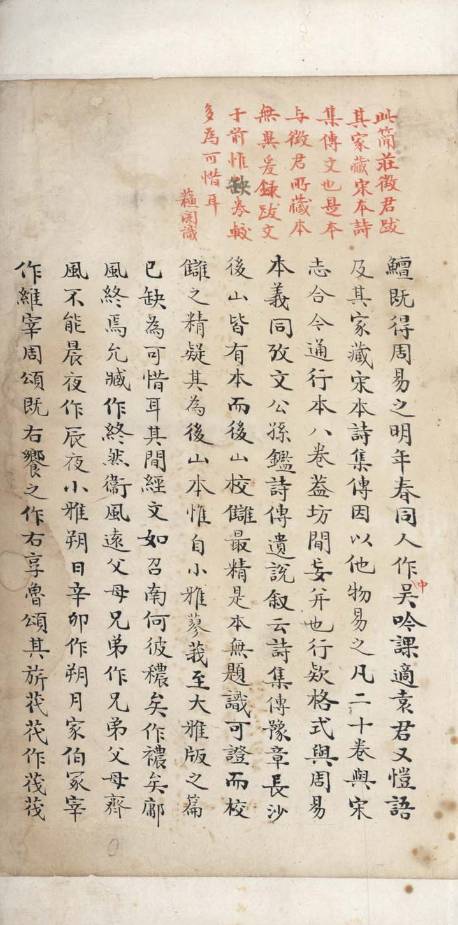 此簡莊徵君跋
其家藏宋本詩
集傳文也是本
与徵君所藏本
無異爰錄跋文
于前惟缺卷較
多為可惜耳
蘓閣識
鱣既得周易之明年春同人作吴中吟課適袁君又愷語
及其家藏宋本詩集傳因以他物易之凡二十卷與宋
志合今通行本八卷葢坊間妄并也行欵格式與周易
本義同攷文公孫鑑詩傳遺說叙云詩集傳豫章長沙
後山皆有本而後山校讎最精是本無題識可證而校
讎之精疑其為後山本惟自小雅蓼莪至大雅版之篇
已缺為可惜耳其間經文如召南何彼穠矣作襛矣鄘
風終焉允臧作終然衞風遠父母兄弟作兄弟父母齊
風不能晨夜作辰夜小雅朔日辛卯作朔月家伯冢宰
作維宰周頌既右饗之作右享魯頌其旂茷茷作筏筏